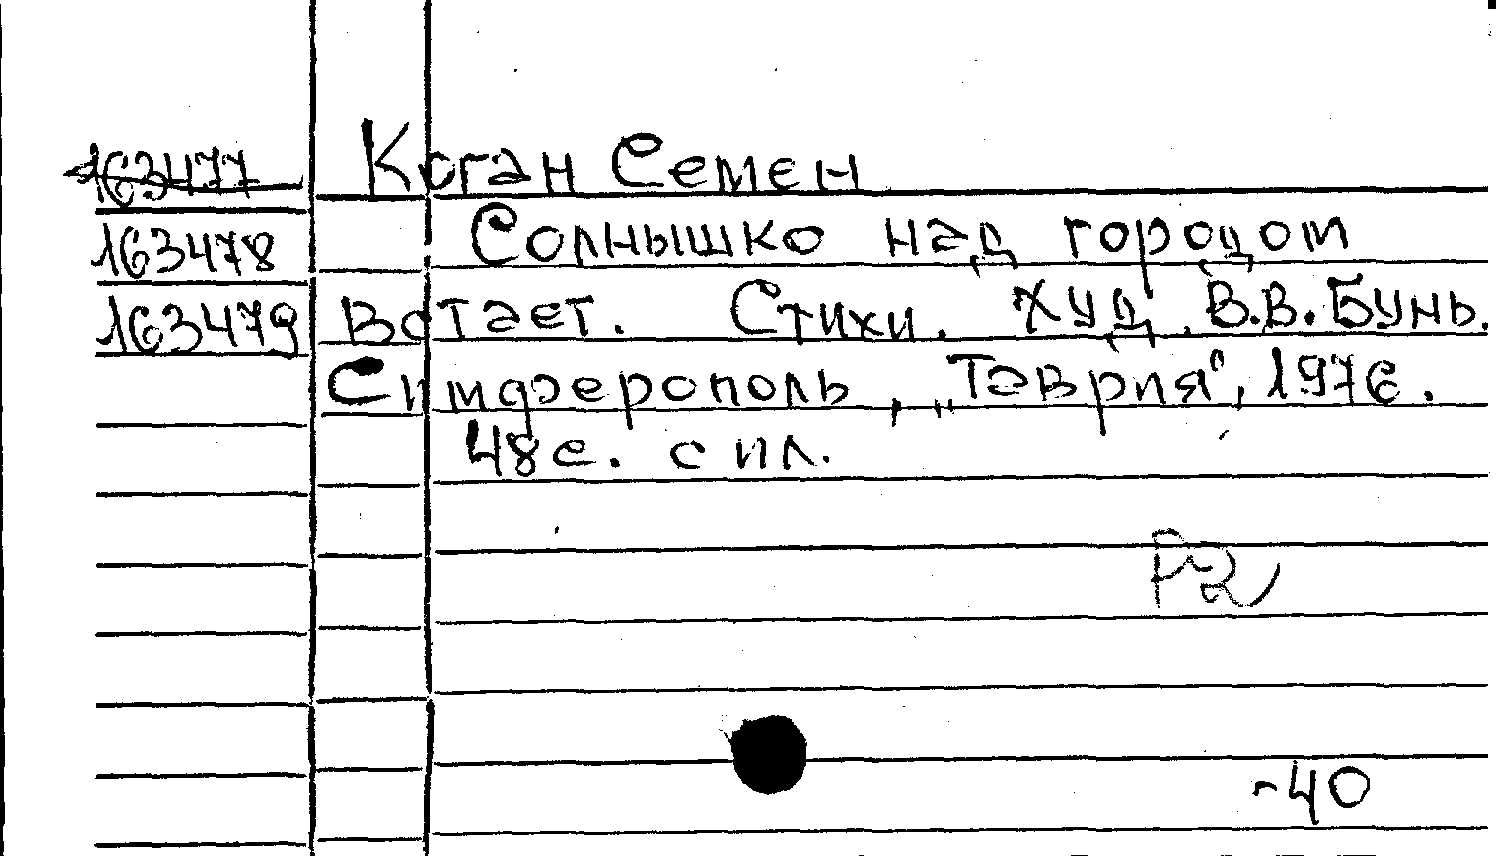 163477 Коган Семен
163478 Солнышко над городом
163479 Встает. Стихи. Худ. В.В. Бунь.
Симферополь, „Таврия", 1976.
48 с. с ил.
Р2
-40